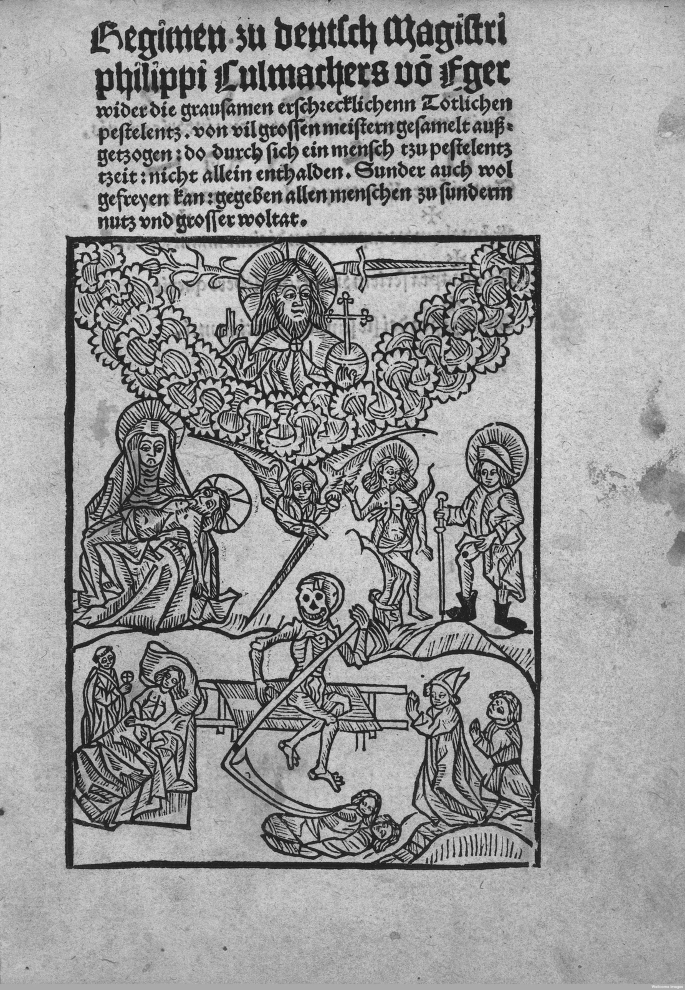 Regimen zu deutſch Magiſtri
philippi Culmachers vō Eger
wider die grauſamen erſchrecklichenn Tötlichen
peſtelentz. von vil groſſen meiſtern geſamelt auß⸗
getzogen: do durch ſich ein menſch tzu peſtelentz
tzeit: nicht allein enthalden. Sunder auch wol
gefreyen kan: gegeben allen menſchen zu ſunderm
nutz vnd groſſer woltat.